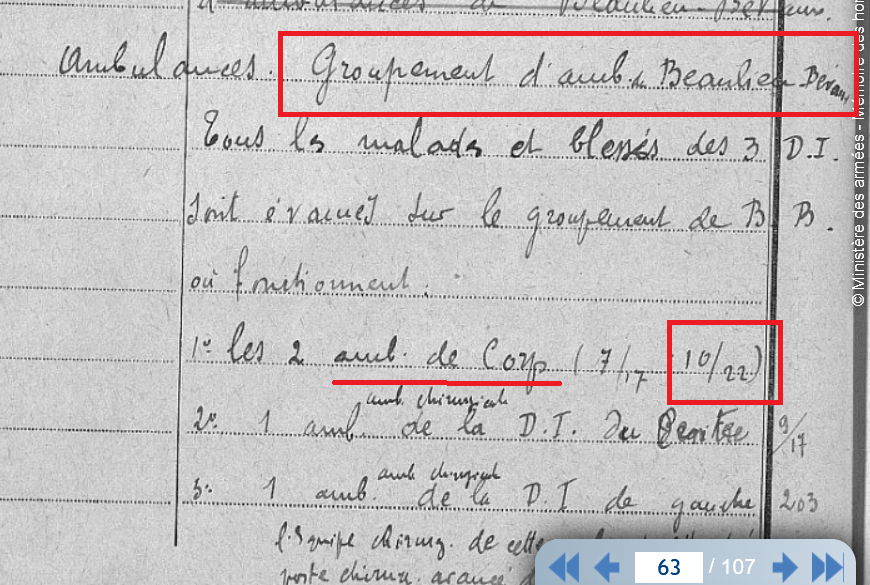 d'ambulances de Beaulieu-
Ambulances. Groupement d'amb. de Beaulieu Béran
Tous les malades et blessés des 3 D.I.
sont évacués sur le groupement de B B.
où fonctionnent.
1º les 2 amb. de Corp (7/17 10/22)
amb. chirurgicale
2º 1 amb. de la D.I. du Centre 9/17
amb chirurgicale
3º 1 amb. de la D.I de gauche 203
l'Equipe chirurg. de cette
poste chirur. avancé
© Ministère des armées - Mémoire des hom
63 / 107